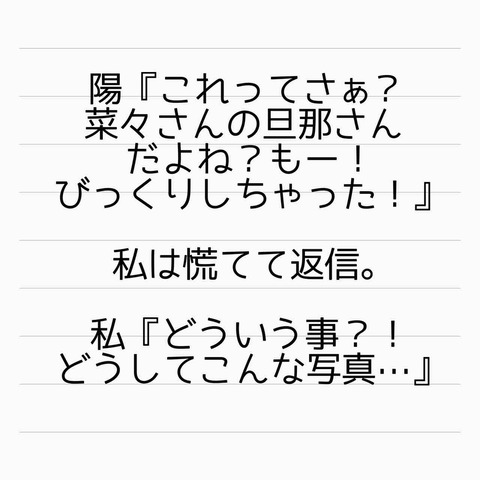 陽『これってさぁ？
菜々さんの旦那さん
だよね？もー！
びっくりしちゃった！』
私は慌てて返信。
私『どういう事？！
どうしてこんな写真…』